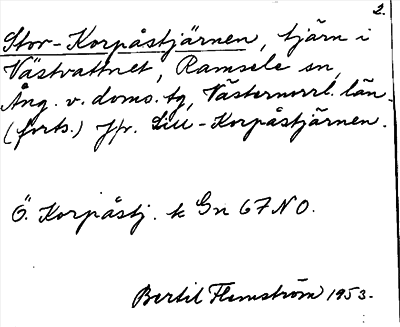 2.
Stor-Korpåstjärnen, tjärn i
Västvattnet, Ramsele sn,
Ång. v. doms. tg, Västernorrl. län.
(forts.) Jfr. Lill-Korpåstjärnen.
Ö. Korpåstj. k Gn 67 NO.
Bertil Flemström 1953.